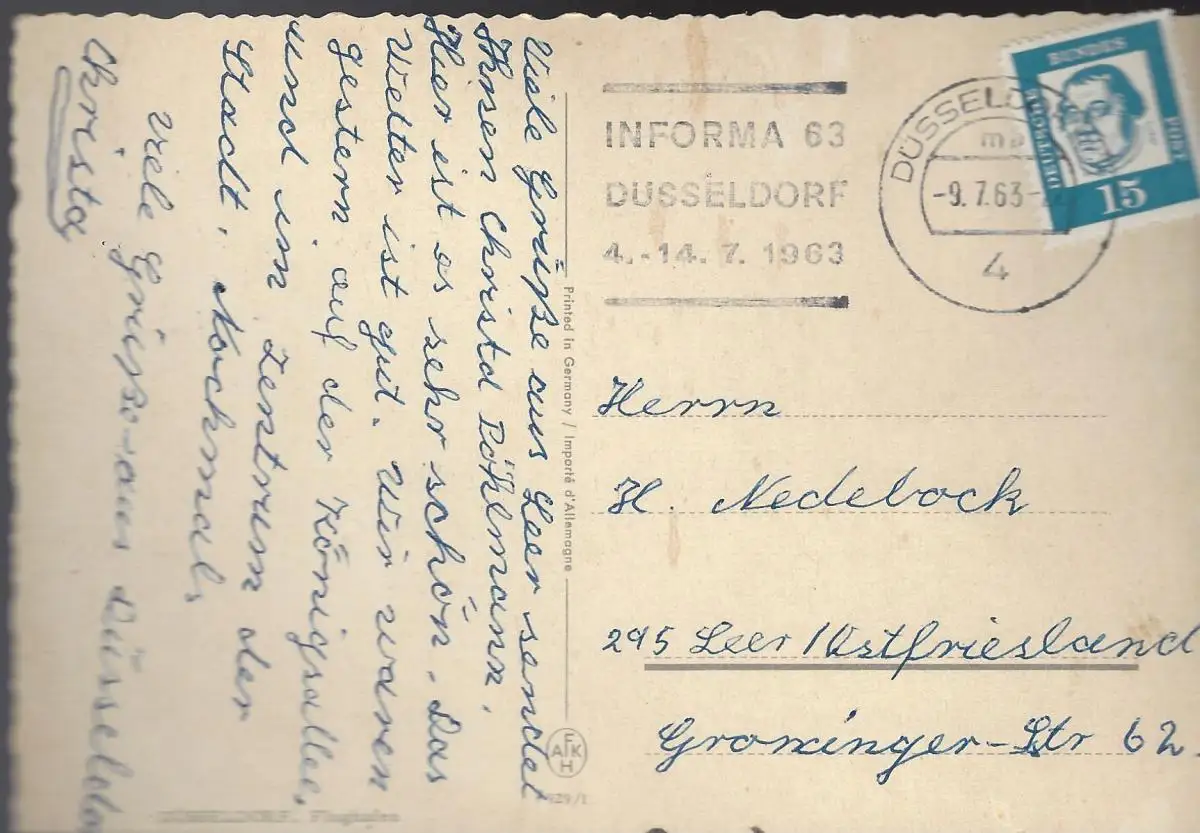 Viele Grüße aus Leer sendet
Ihnen Christa Pöhlmann.
Hier ist es sehr schön. Das
Wetter ist gut. Wir waren
gestern auf der Königsallee,
und im Zentrum der
Stadt. Nochmals
viele Grüße aus Düsseldo
Christa
Printed in Germany / Importé d'Allemagne
AFKH
929/1
DÜSSELDORF. Flughafen
INFORMA 63
DÜSSELDORF
4.-14. 7. 1963
DÜSSELDO
-9.7.63-
4
BUNDES
15
Herrn
H. Nedebock
295 Leer/Ostfriesland
Groninger-Str 62.